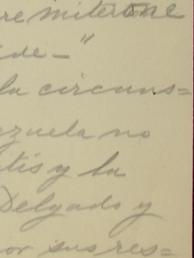 ide-"
la circuns=
ezuela no
tis y la
Delgado y
or sus res=